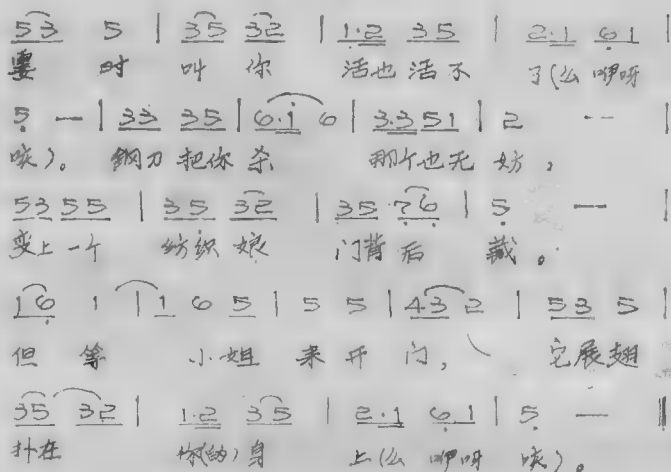 53 5 | 35 32 | 1·2 35 | 2·1 61 |
霎时叫你 活也活不 了(么咿呀
5 — | 33 35 | 6·i 6 | 3·3 51 | 2 — |
咳)。鋼刀把你杀 那个也无妨,
53 55 | 35 32 | 35 ·76 | 5 — |
变上一个 纺织娘 门背后藏。
16 1 | 1 6 5 | 5 5 | 43 2 | 53 5 |
但等 小姐来开门, 它展翅
35 32 | 1·2 35 | 2·1 61 | 5 — ‖
扑在 你(的)身 上(么咿呀咳)。